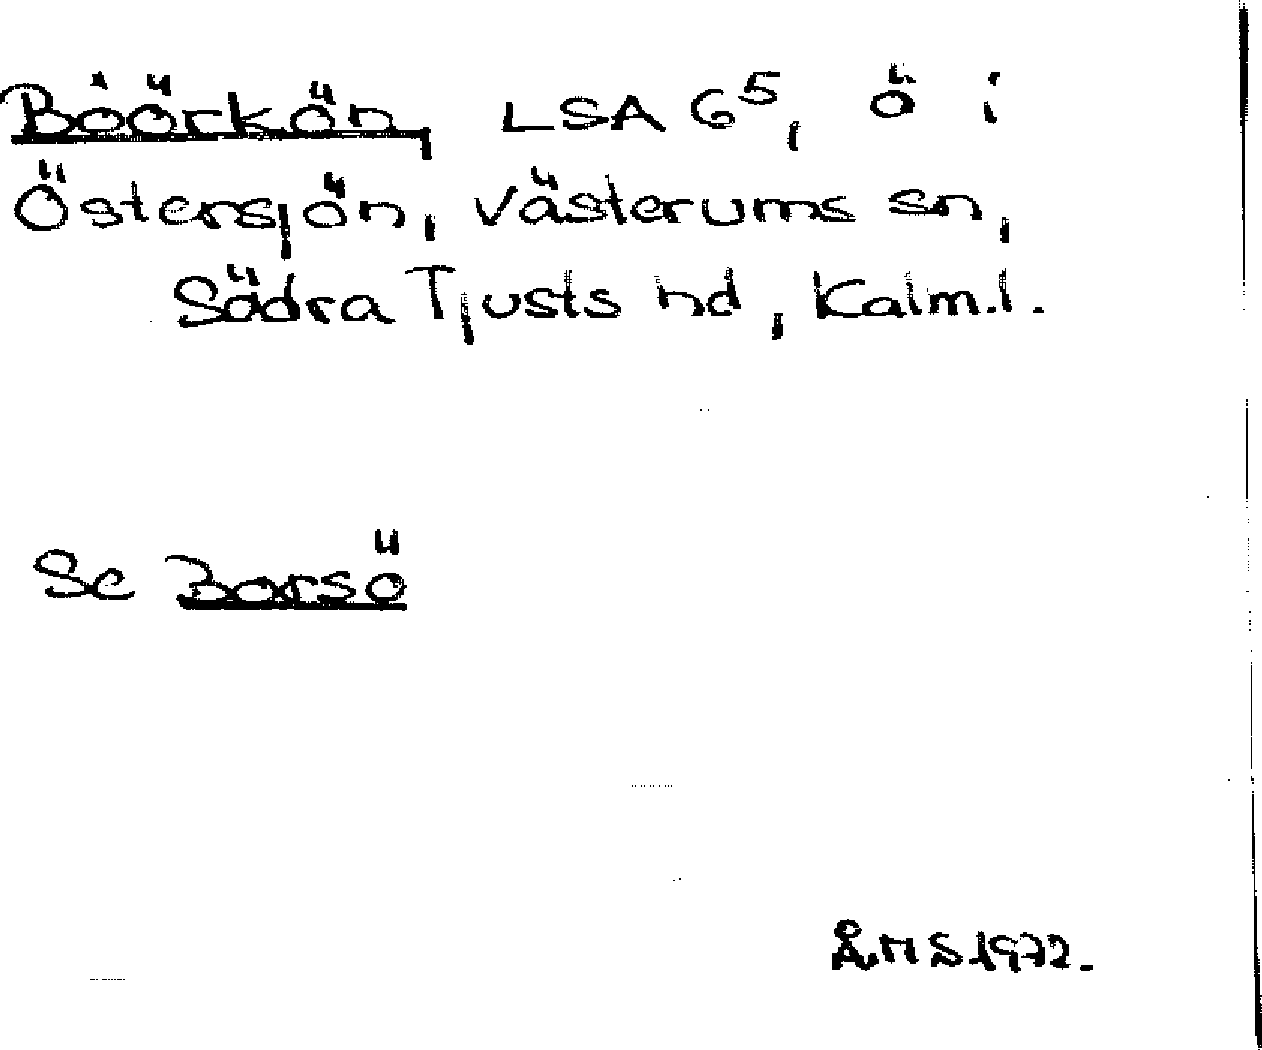 Böörkön, LSA G⁵, ö i
Östersjön, Västerums sn,
Södra Tjusts hd, Kalm.l.
Se Borsö
ÅMS 1972.